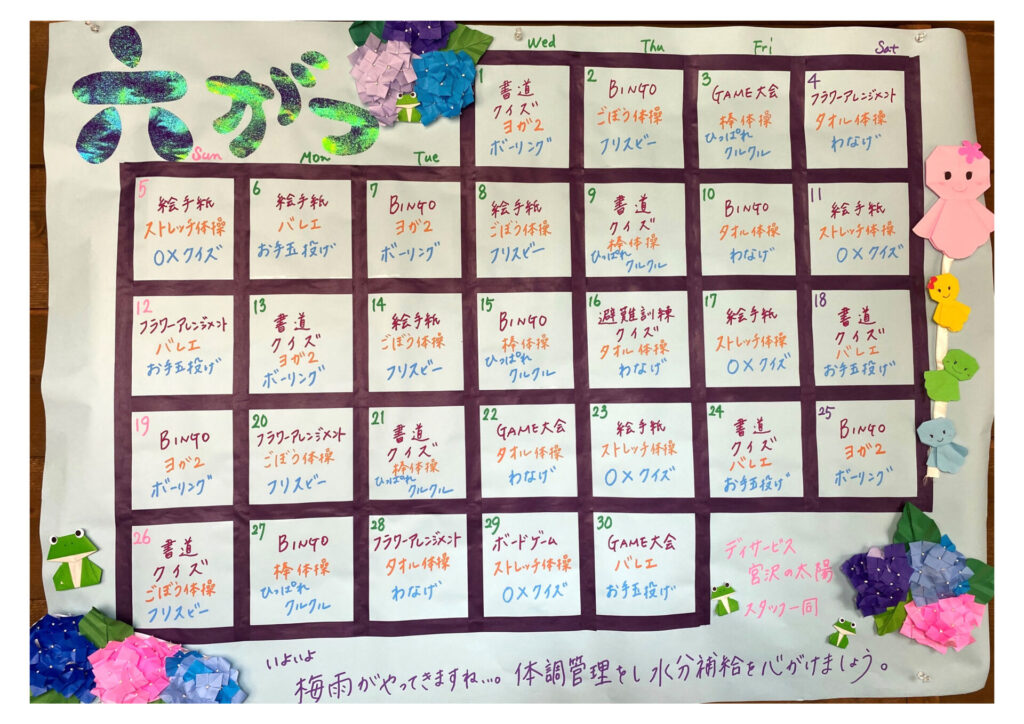 六がつ
Wed Thu Fri Sat
Sun Mon Tue
1
書道
クイズ
ヨガ2
ボーリング
2
BINGO
ごぼう体操
フリスビー
3
GAME大会
棒体操
ひっぱれ
クルクル
4
フラワーアレンジメント
タオル体操
わなげ
5
絵手紙
ストレッチ体操
O×クイズ
6
絵手紙
バレエ
お手玉投げ
7
BINGO
ヨガ2
ボーリング
8
絵手紙
ごぼう体操
フリスビー
9
書道
クイズ
棒体操
ひっぱれ
クルクル
10
BINGO
タオル体操
わなげ
11
絵手紙
ストレッチ体操
O×クイズ
12
フラワーアレンジメント
バレエ
お手玉投げ
13
書道
クイズ
ヨガ2
ボーリング
14
絵手紙
ごぼう体操
フリスビー
15
BINGO
棒体操
ひっぱれ
クルクル
16
避難訓練
クイズ
タオル体操
わなげ
17
絵手紙
ストレッチ体操
O×クイズ
18
書道
クイズ
バレエ
お手玉投げ
19
BINGO
ヨガ2
ボーリング
20
フラワーアレンジメント
ごぼう体操
フリスビー
21
書道
クイズ
棒体操
ひっぱれ
クルクル
22
GAME大会
タオル体操
わなげ
23
絵手紙
ストレッチ体操
O×クイズ
24
書道
クイズ
バレエ
お手玉投げ
25
BINGO
ヨガ2
ボーリング
26
書道
クイズ
ごぼう体操
フリスビー
27
BINGO
棒体操
ひっぱれ
クルクル
28
フラワーアレンジメント
タオル体操
わなげ
29
ボードゲーム
ストレッチ体操
O×クイズ
30
GAME大会
バレエ
お手玉投げ
ディサービス
宮沢の太陽
スタッフ一同
いよいよ
梅雨がやってきますね...。体調管理をし水分補給を心がけましょう。